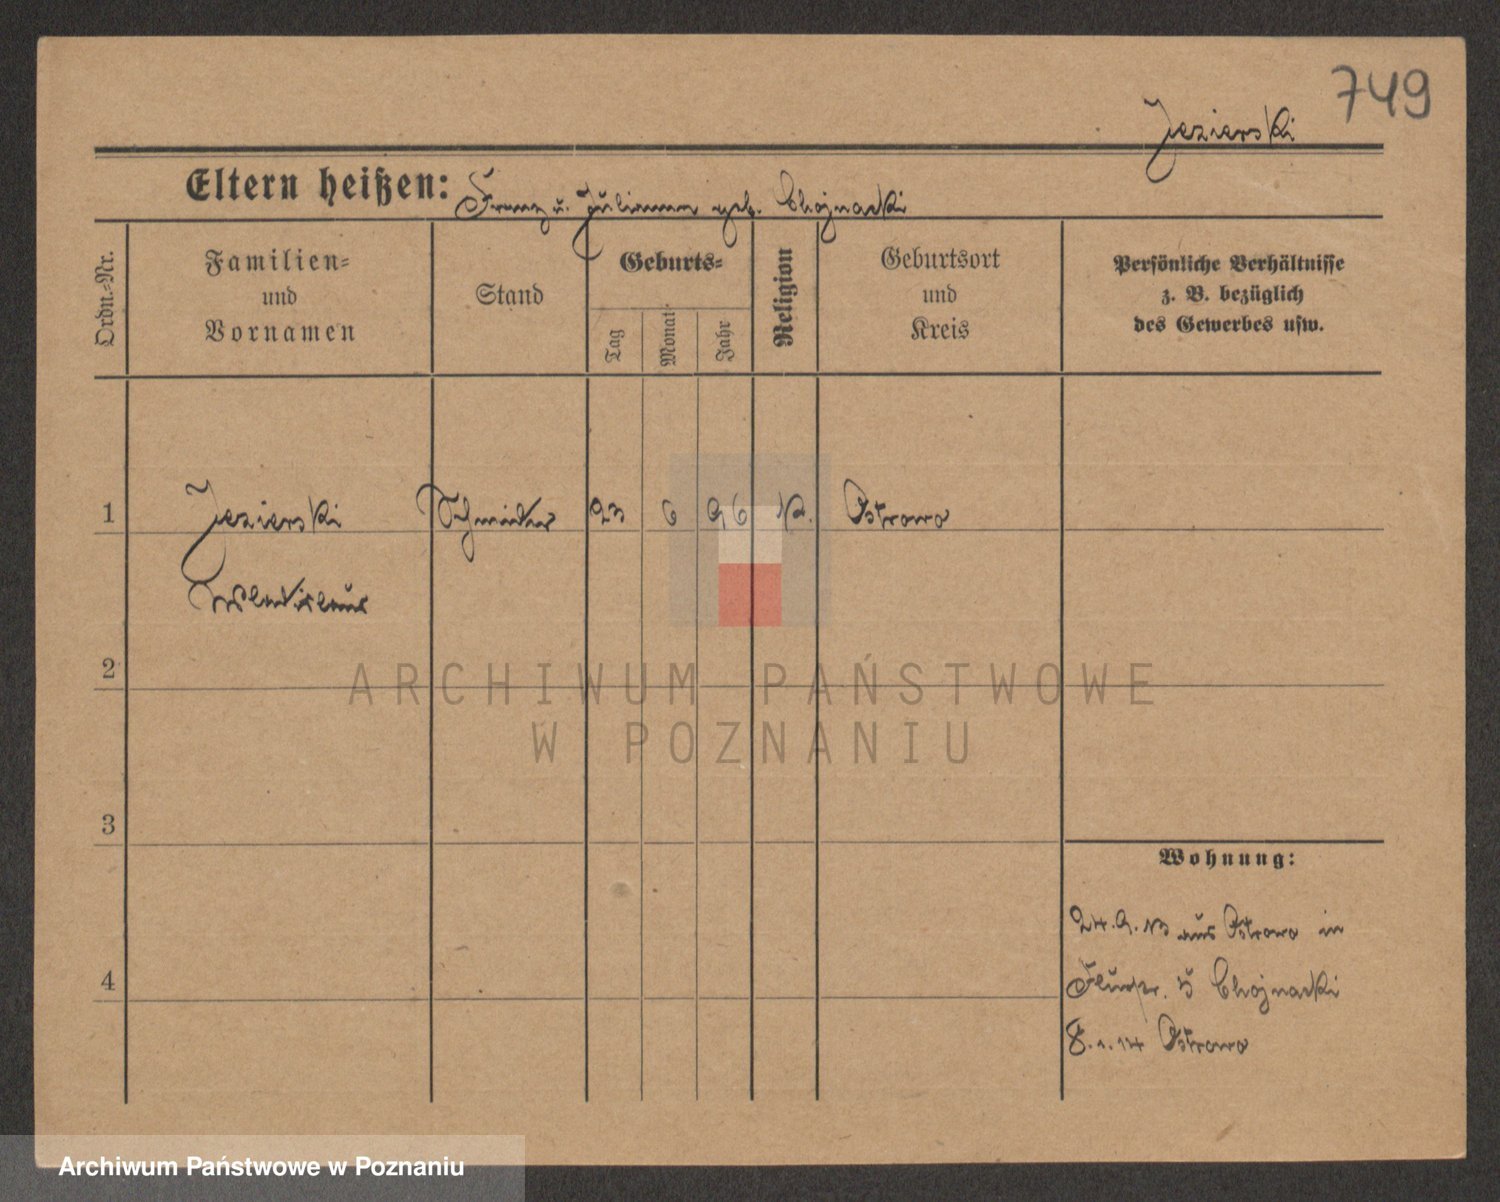 749
Jezierski
Eltern heißen: Franz u. Julianna geb. Chojnacki
Ordn.-Nr.
Familien-
und
Vornamen
Stand
Geburts-
Tag
Monat
Jahr
Religion
Geburtsort
und
Kreis
Persönliche Verhältnisse
z. B. bezüglich
des Gewerbes usw.
1 Jezierski Schmied 23 6 96 K. Ostrowo
Wladislaus
2
ARCHIWUM PAŃSTWOWE
W POZNANIU
3
Wohnung:
24.9.13 aus Ostrowo in
5 Chojnacki
4
8.1.14 Ostrowo
Archiwum Państwowe w Poznaniu